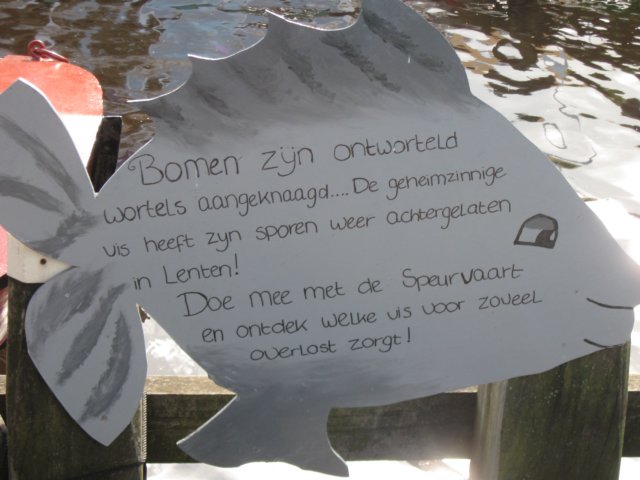 Bomen zijn ontworteld
wortels aangeknaagd.... De geheimzinnige
vis heeft zijn sporen weer achtergelaten
in Lenten!
Doe mee met de Speurvaart
en ontdek welke vis voor zoveel
overlost zorgt!